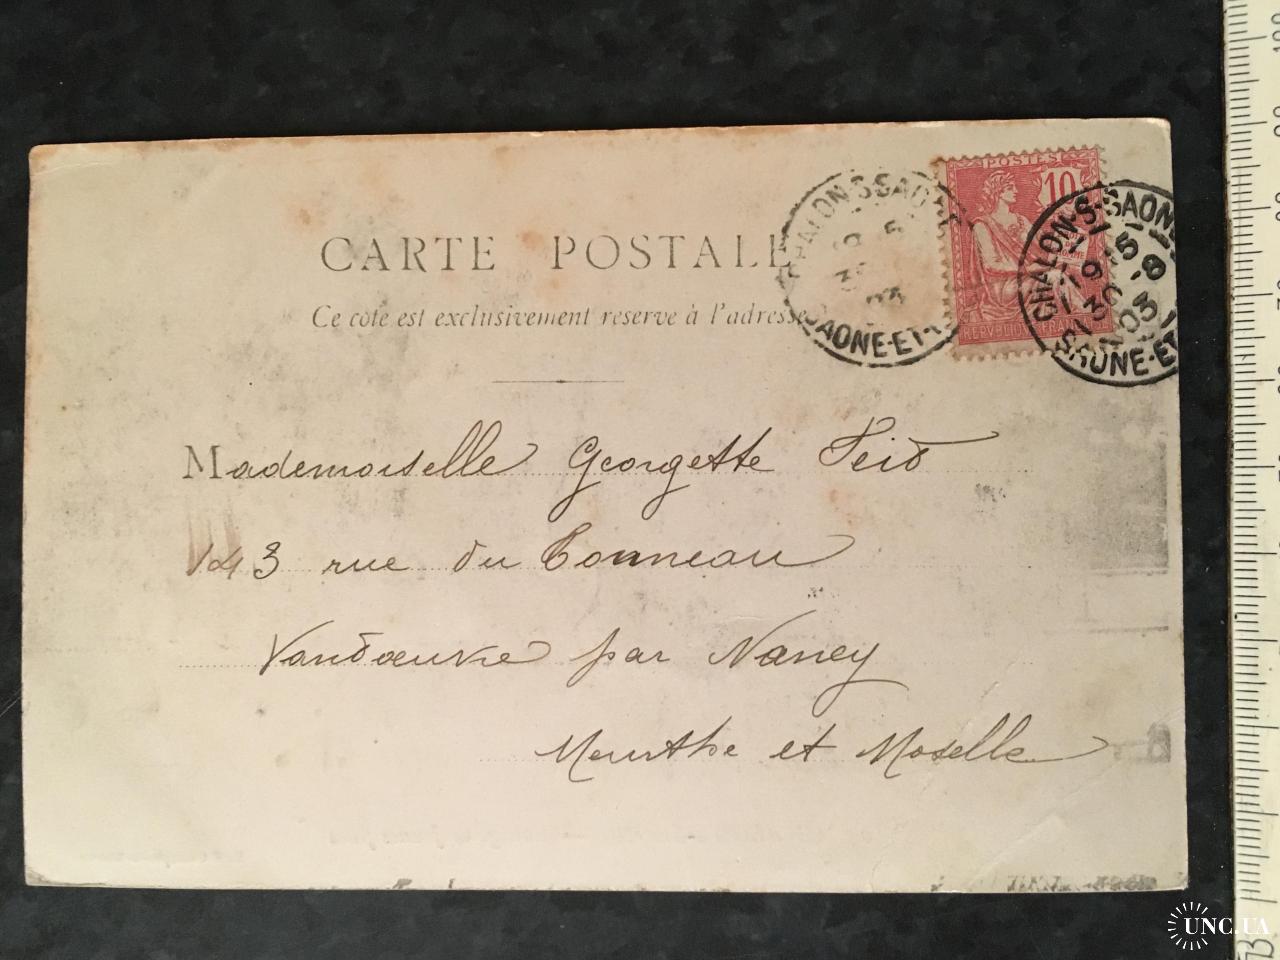 CARTE POSTALE
Ce côté est exclusivement réservé à l'adresse
POSTES
10
REPVBLIQVE FRANCAISE
CHALON-S-SAONE
SAONE-ET-L
03
CHALON-S-SAONE
1915
30 -8
03
SAONE-ET
Mademoiselle Georgette
143 rue du Tonneau
Vandoeuvre par Nancy
Meurthe et Moselle
UNC.UA